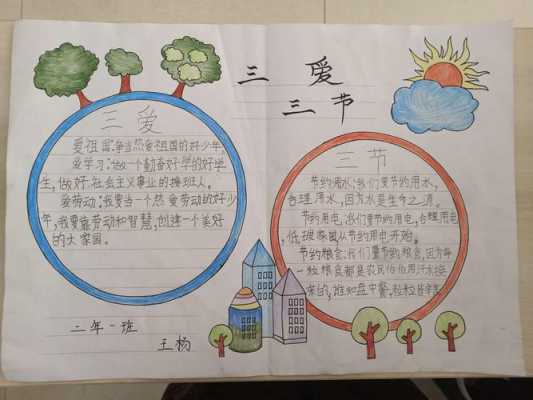 三爱
三节
三爱
爱祖国:争当热爱祖国的好少年
爱学习:做一个勤奋好学的好学
生,做好社会主义事业的接班人。
爱劳动:我要当一个热爱劳动的好少
年,我要靠劳动和智慧,创建一个美好
的大家园。
二年一班
王杨
三节
节约用水:我们要节约用水,
合理用水,因为水是生命之源。
节约用电:我们要节约用电,合理用电
低碳家园从节约用电开始。
节约粮食:我们要节约粮食,因为每
一粒粮食都是农民伯伯用汗水换
来的,谁知盘中餐,粒粒皆辛苦